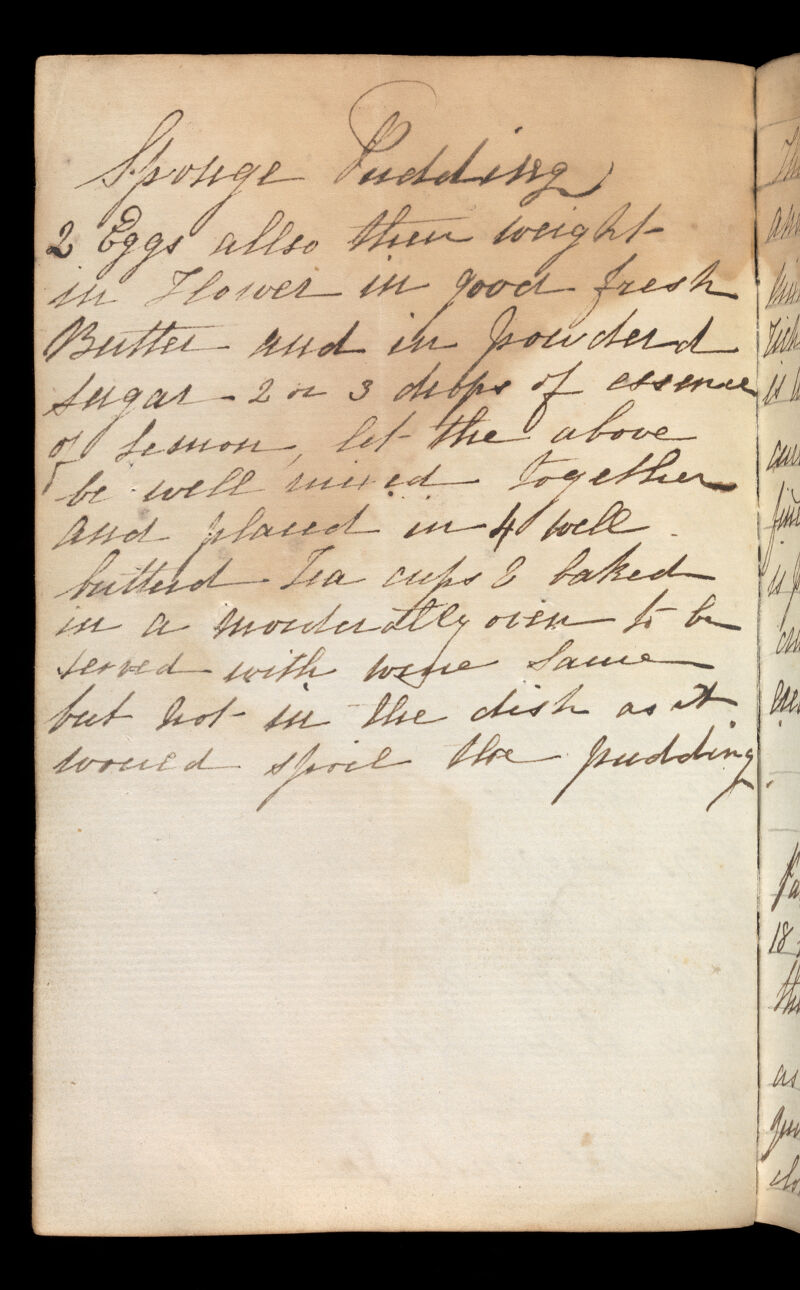 Sponge Pudding
2 Eggs allso their weight
in Flower in good fresh
Butter and in powderd
sugar - 2 or 3 drops of essence
of Lemon, let the above
be well mixed together
and placed in 4 well
butterd Tea cups & baked
in a mouderatlly oven to be
served with wine Sauce
but not in the dish as it
would spoil the pudding